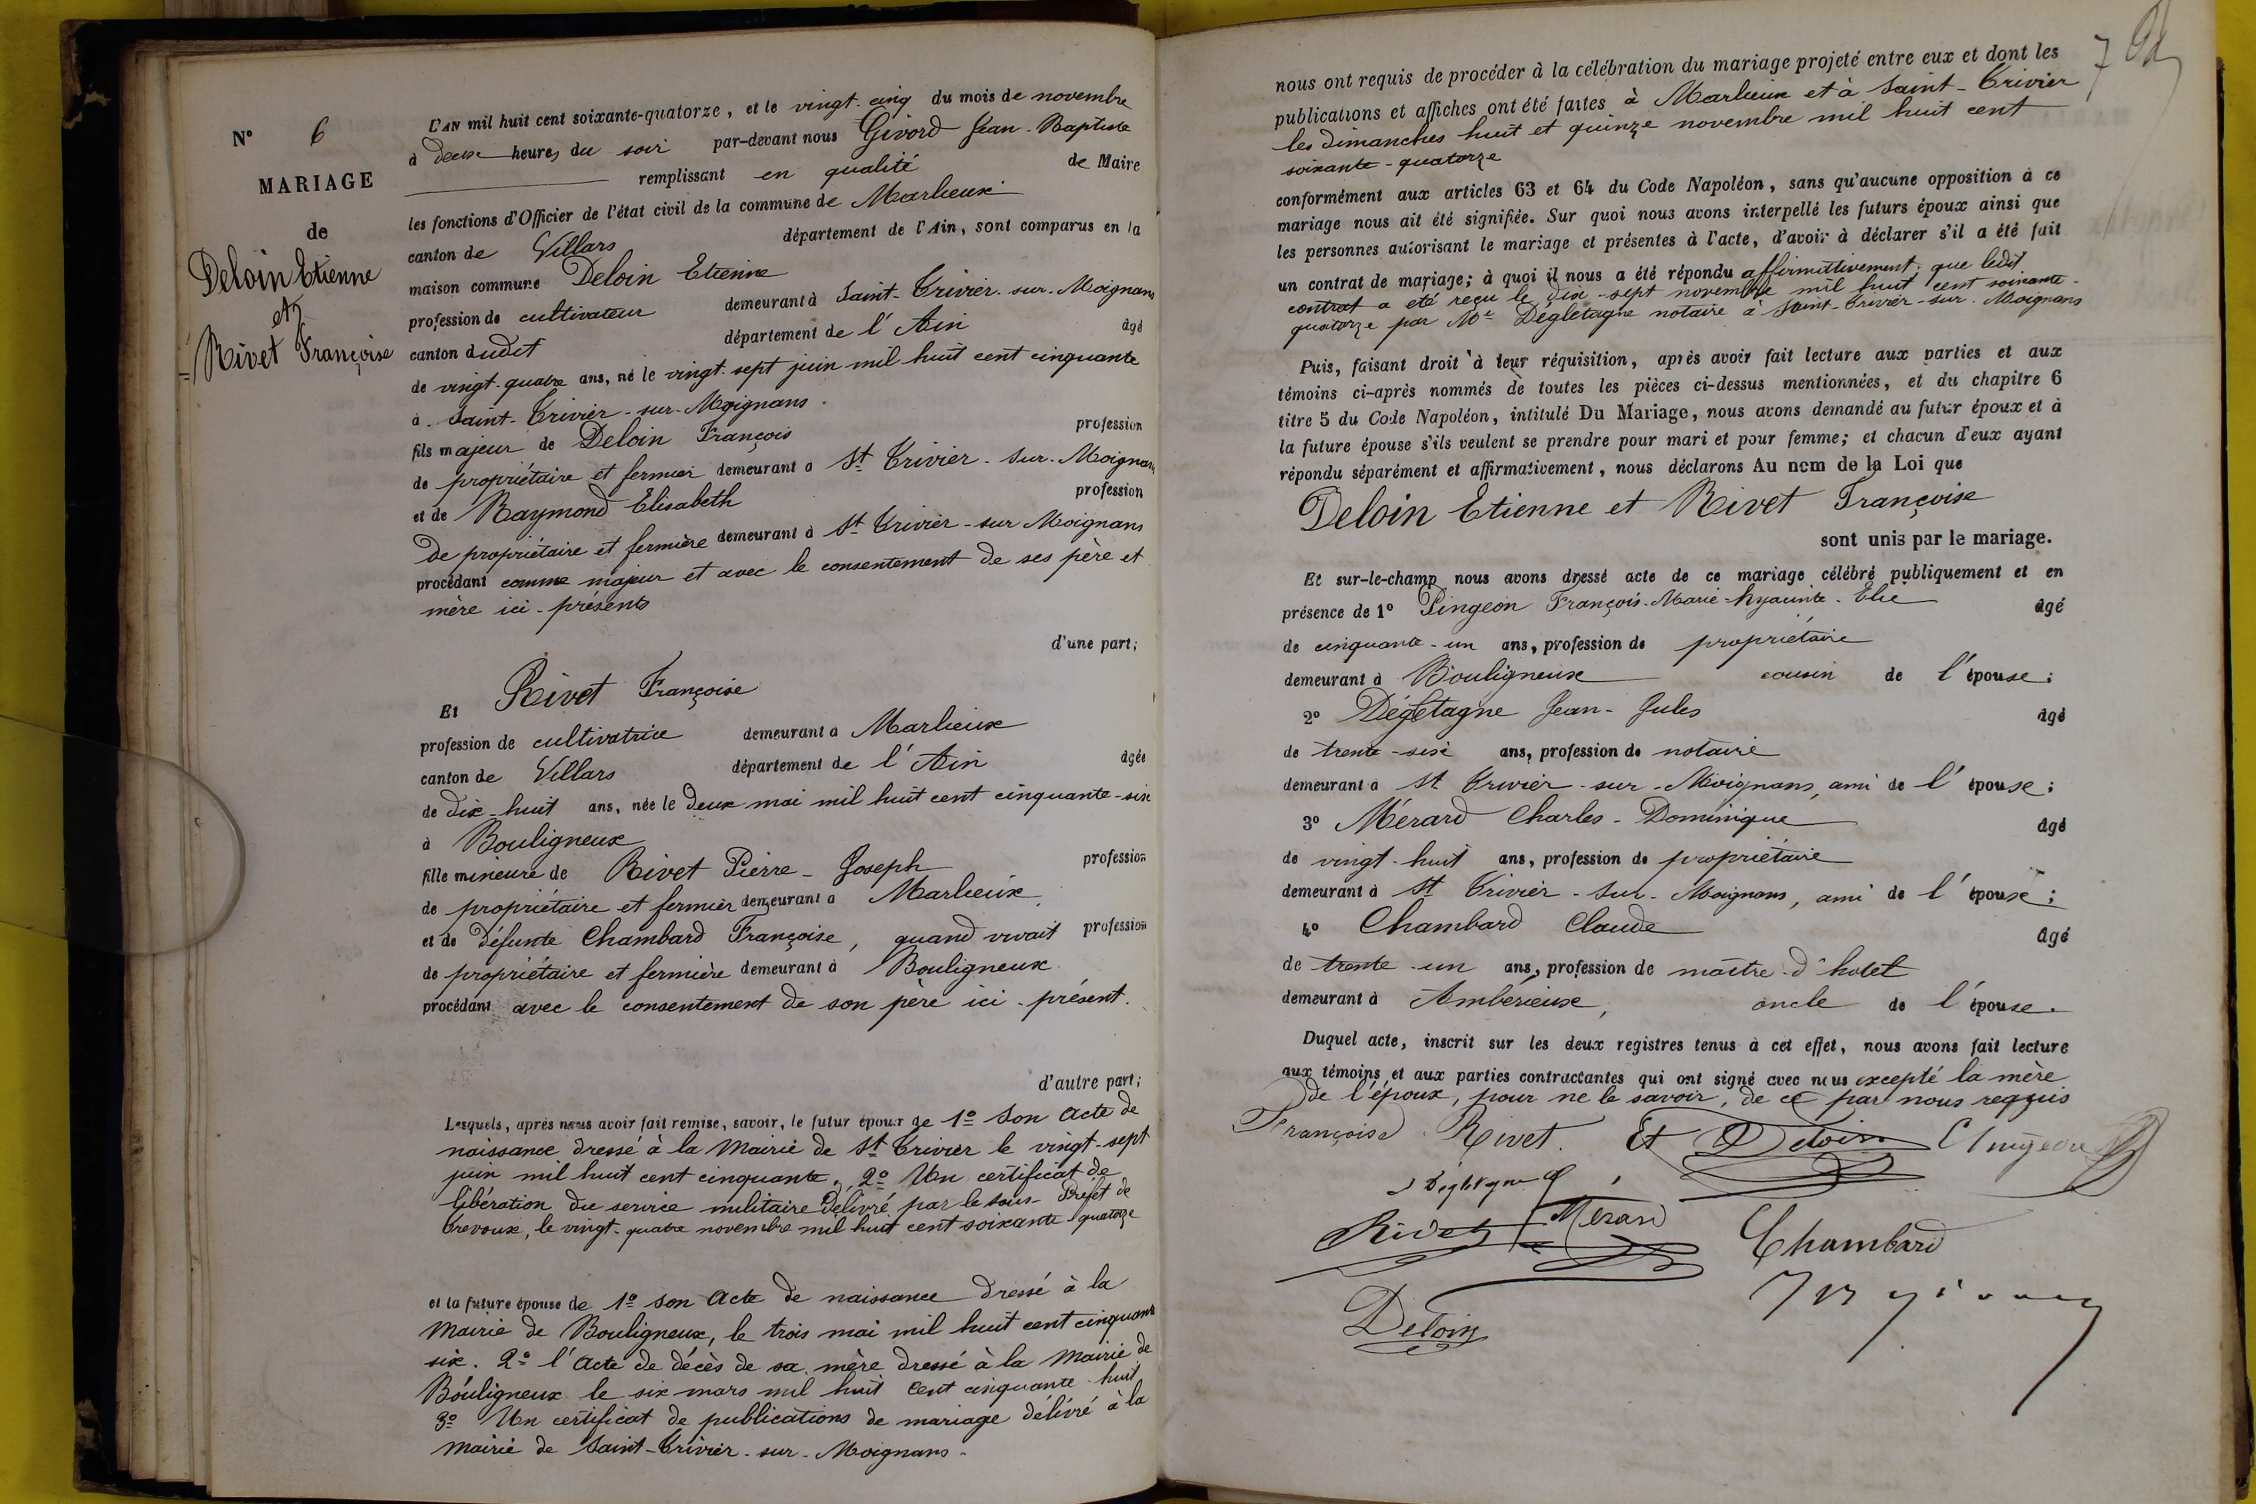 N° 6
MARIAGE
de
Deloin Etienne
et
Rivet Françoise
L'AN mil huit cent soixante-quatorze, et le vingt-cinq du mois de novembre
à deux heures du soir par-devant nous Givord Jean-Baptiste
remplissant en qualité de Maire
les fonctions d'Officier de l'état civil de la commune de Marlieux
canton de Villars département de l'Ain, sont comparus en la
maison commune Deloin Etienne
profession de cultivateur demeurant à Saint-Trivier-sur-Moignans
canton dudit département de l'Ain âgé
de vingt-quatre ans, né le vingt-sept juin mil huit cent cinquante
à Saint-Trivier-sur-Moignans.
fils majeur de Deloin François profession
de propriétaire et fermier demeurant à St Trivier-sur-Moignans
et de Raymond Elisabeth profession
De propriétaire et fermière demeurant à St Trivier-sur Moignans
procédant comme majeur et avec le consentement de ses père et
mère ici-présents
d'une part;
Et Rivet Françoise
profession de cultivatrice demeurant à Marlieux
canton de Villars département de l'Ain âgée
de dix-huit ans, née le deux mai mil huit cent cinquante-six
à Bouligneux
fille mineure de Rivet Pierre-Joseph profession
de propriétaire et fermier demeurant à Marlieux,
et de défunte Chambard Françoise, quand vivait profession
de propriétaire et fermière demeurant à Bouligneux
procédant avec le consentement de son père ici-présent.
d'autre part;
Lesquels, après nous avoir fait remise, savoir, le futur époux de 1° Son acte de
naissance dressé à la Mairie de St Trivier le vingt-sept
juin mil huit cent cinquante, 2° Un certificat de
libération du service militaire délivré par le Sous-Préfet de
Trevoux, le vingt-quatre novembre mil huit cent soixante-quatorze
et la future épouse de 1° son acte de naissance dressé à la
Mairie de Bouligneux, le trois mai mil huit cent cinquante
six. 2° l'acte de décès de sa mère dressé à la Mairie de
Bouligneux le six mars mil huit cent cinquante-huit
3° Un certificat de publications de mariage délivré à la
Mairie de Saint-Trivier-sur-Moignans.
7
nous ont requis de procéder à la célébration du mariage projeté entre eux et dont les
publications et affiches ont été faites à Marlieux et à Saint-Trivier
les dimanches huit et quinze novembre mil huit cent
soixante-quatorze
conformément aux articles 63 et 64 du Code Napoléon, sans qu'aucune opposition à ce
mariage nous ait été signifiée. Sur quoi nous avons interpellé les futurs époux ainsi que
les personnes autorisant le mariage et présentes à l'acte, d'avoir à déclarer s'il a été fait
un contrat de mariage; à quoi il nous a été répondu affirmativement, que ledit
contrat a été reçu le dix-sept novembre mil huit cent soixante-
quatorze par Me Dégletagne notaire à Saint-Trivier-sur-Moignans
Puis, faisant droit à leur réquisition, après avoir fait lecture aux parties et aux
témoins ci-après nommés de toutes les pièces ci-dessus mentionnées, et du chapitre 6
titre 5 du Code Napoléon, intitulé Du Mariage, nous avons demandé au futur époux et à
la future épouse s'ils veulent se prendre pour mari et pour femme; et chacun d'eux ayant
répondu séparément et affirmativement, nous déclarons Au nom de la Loi que
Deloin Etienne et Rivet Françoise
sont unis par le mariage.
Et sur-le-champ nous avons dressé acte de ce mariage célébré publiquement et en
présence de 1° Pingeon François-Marie-hyacinte-Elie âgé
de cinquante-un ans, profession de propriétaire
demeurant à Bouligneux cousin de l'épouse;
2° Dégletagne Jean-Jules âgé
de trente-six ans, profession de notaire
demeurant à St Trivier-sur-Moignans, ami de l'épouse;
3° Mérard Charles-Dominique âgé
de vingt-huit ans, profession de propriétaire
demeurant à St Trivier-sur-Moignans, ami de l'épouse;
4° Chambard Claude âgé
de trente-un ans, profession de maître-d'hotel
demeurant à Ambérieux, oncle de l'épouse.
Duquel acte, inscrit sur les deux registres tenus à cet effet, nous avons fait lecture
aux témoins et aux parties contractantes qui ont signé avec nous excepté la mère
de l'époux, pour ne le savoir, de ce par nous requis
Françoise Rivet. Et Deloin
Rivet Mérard
Chambard
Deloin